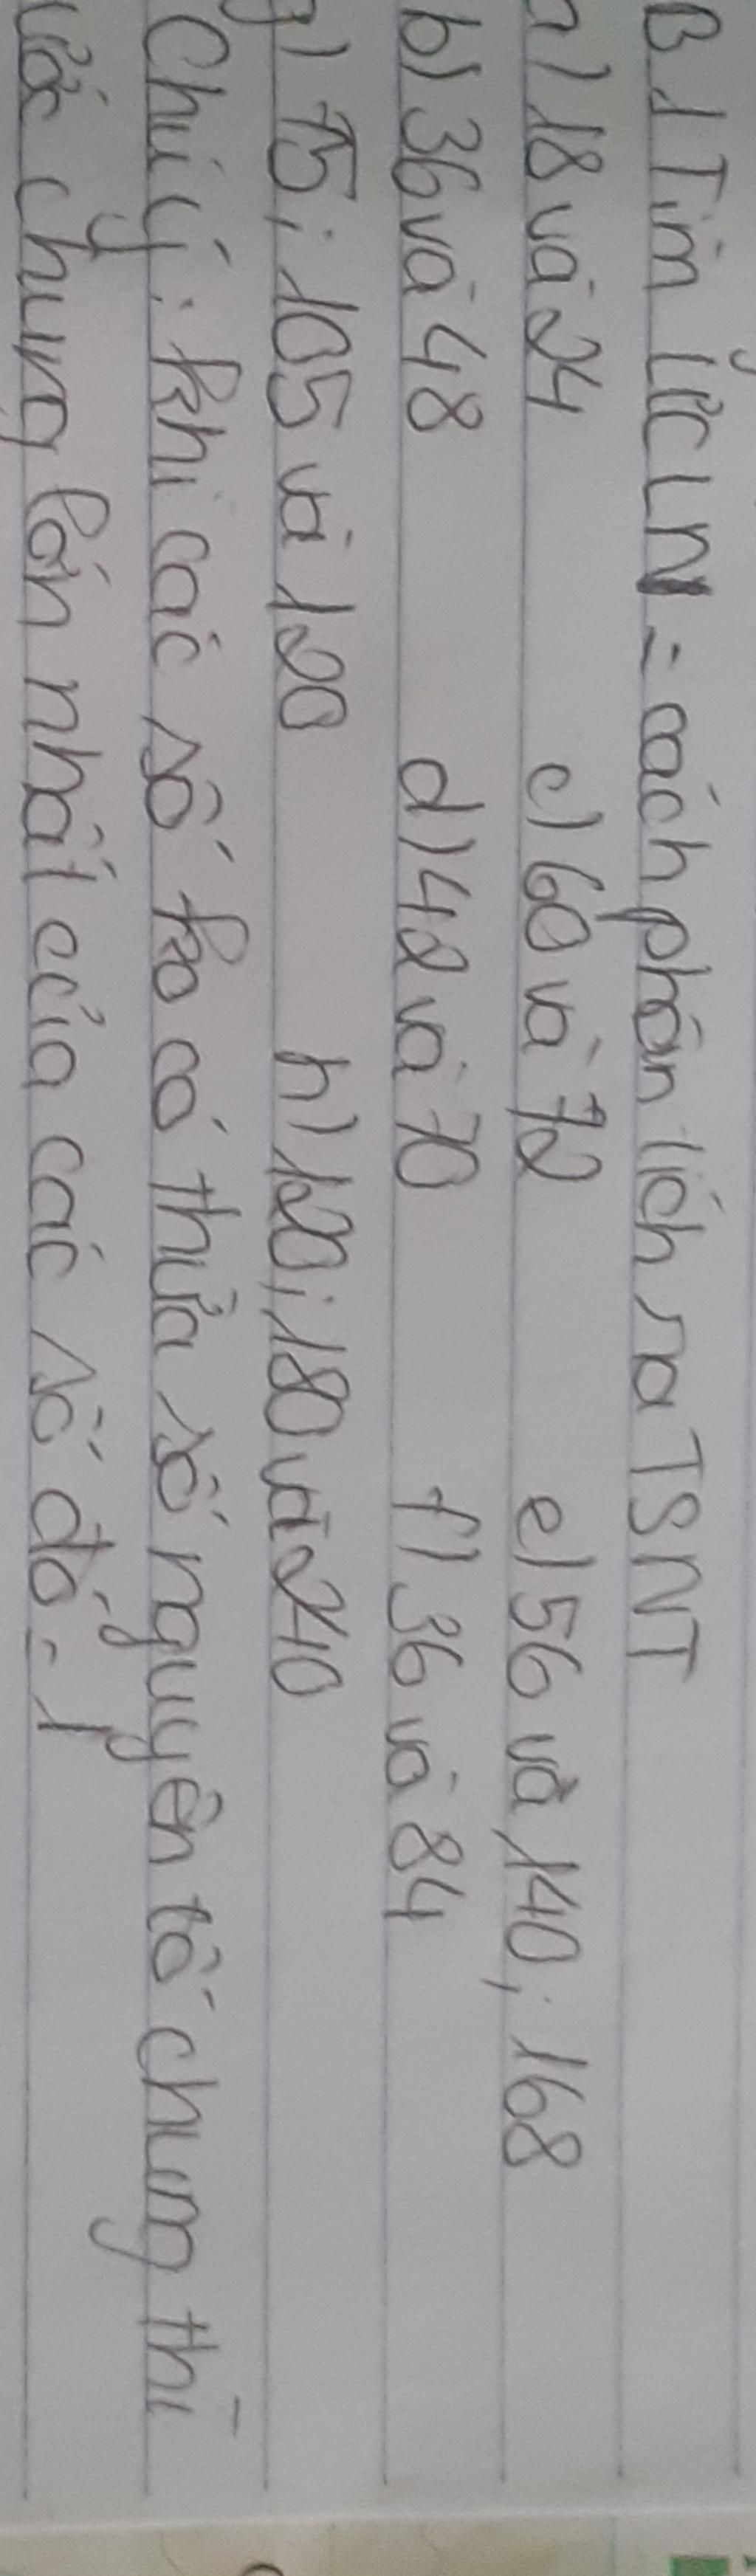 B.1 Tìm ƯCLN = cách phân tích ra TSNT
a) 18 và 24 c) 60 và 72 e) 56 và 140; 168
b) 36 và 48 d) 42 và 70 f) 36 và 84
g) 75; 105 và 120 h) 120; 180 và 240
Chú ý: khi các số ko có thừa số nguyên tố chung thì
ước chung lớn nhất của các số đó = 1